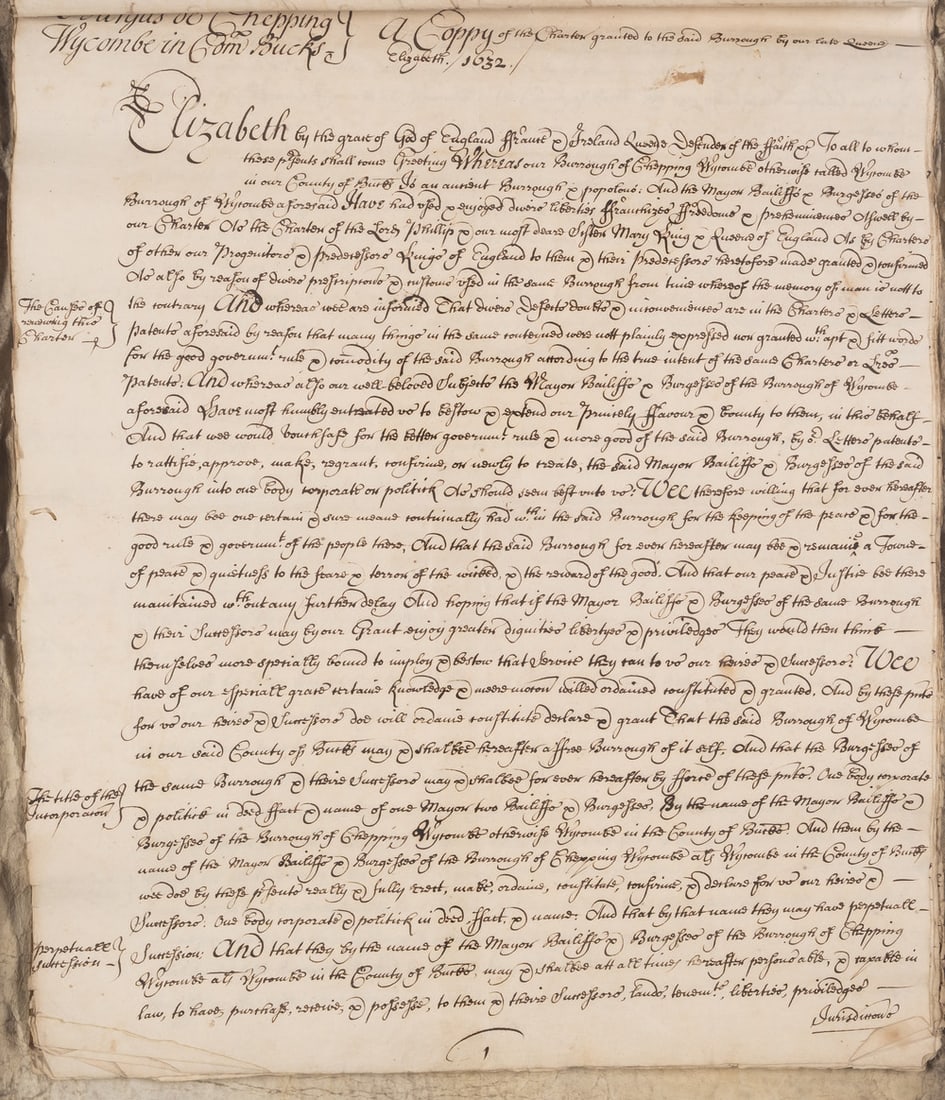 Burgus de Chepping
Wycombe in Com Bucks
A Coppy of the Charter granted to the said Burrough by our late Queene
Elizabeth. / 1632. /
Elizabeth by the grace of God of England ffrance & Ireland Queene Defender of the ffaith &c To all to whom
these pʳsents shall come Greeting Whereas our Burrough of Chepping Wycombe otherwise called Wycombe
in our County of Bucks Is an antient Burrough & populous: And the Mayor Bailiffs & Burgesses of the
Burrough of Wycombe aforesaid Have had vsed & enjoyed divers liberties ffranchizes ffreedoms & preheminences Aswell by
our Charter As the Charter of the Lord Phillip & our most deare Sister Mary King & Queene of England As by Charters
of other our Progenitors & Predecessors Kings of England to them & their Predecessors heretofore made granted & confirmed
As also by reason of divers prescriptons & customs vsed in the same Burrough from time whereof the memory of man is not to
The Cause of
renewing this
Charter
the contrary And whereas wee are informed That divers Defects doubts & inconveniences are in the Charters & Letters
Patents aforesaid by reason that many things in the same conteyned were nott plainly expressed nor granted wᵗʰ apt & fitt words
for the good governmᵗ rule & comodity of the said Burrough according to the true intent of the same Charters or Lres
Patents. And whereas also our well beloved Subjects the Mayor Bailiffs & Burgesses of the Burrough of Wycombe
aforesaid Have most humbly entreated vs to bestow & extend our Princely ffavour & bounty to them, in this behalf
And that wee would vouchsafe for the better governmᵗ rule & more good of the said Burrough, by oʳ Letters patents
to rattifie, approve, make, regrant, confirme, or newly to create, the said Mayor Bailiffs & Burgesses of the said
Burrough into one body corporate or politick As should seem best vnto vs: Wee therefore willing that for ever hereafter
there may bee one certain & sure meane continually had wᵗʰin the said Burrough for the keeping of the peace & for the
good rule & governmᵗ of the people there, And that the said Burrough for ever hereafter may bee & remaine a Towne
of peace & quietness to the feare & terror of the wicked, & the reward of the good. And that our peace & Justice bee there
maintained wᵗʰout any further delay And hoping that if the Mayor Bailiffs & Burgesses of the same Burrough
& their Successors may by our Grant enjoy greater dignities libertyes & priviledges They would then think
themselves more specially bound to imploy & bestow that Service they can to vs our heires & Successors: Wee
have of our especiall grace certaine knowledge & meere motion willed ordained constituted & granted. And by these pnts
for vs our heires & Successors doe will ordaine constitute declare & grant That the said Burrough of Wycombe
in our said County of Bucks may & shalbee hereafter a ffree Burrough of it self, And that the Burgesses of
The title of the
Incorporation
the same Burrough & theire Successors may & shalbee for ever hereafter by fforce of these pnts. One body corporate
& politick in deed ffact & name of one Mayor two Bailiffs & Burgesses. By the name of the Mayor Bailiffs &
Burgesses of the Burrough of Chepping Wycombe otherwise Wycombe in the County of Bucks. And them by the
name of the Mayor Bailiffs & Burgesses of the Burrough of Chepping Wycombe als Wycombe in the County of Bucks
wee doe by these pʳsents really & fully erect, make, ordaine, constitute, confirme, & declare for vs our heires &
Successors. One body corporate & politick in deed ffact, & name: And that by that name they may have perpetuall
perpetuall
Succession
Succession; And that they by the name of the Mayor Bailiffs & Burgesses of the Burrough of Chepping
Wycombe als Wycombe in the County of Bucks, may & shalbee att all times hereafter persons able, & capable in
law, to have, purchase, receive, & possesse, to them & theire Successors, lands, tenemᵗˢ, liberties, priviledges
Jurisdictions
1